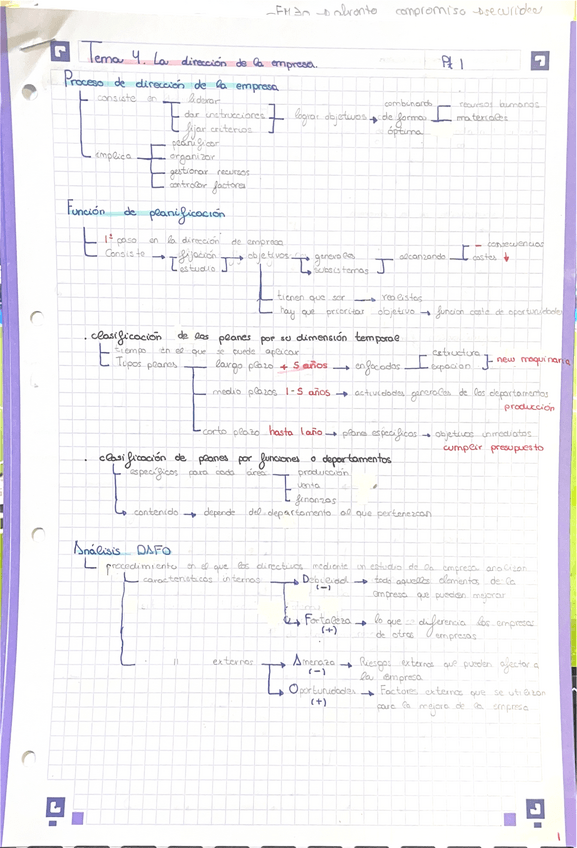 compromiso
Tema 4. La dirección de la empresa. Pt 1
Proceso de dirección de la empresa
consiste en liderar combinando recursos humanos
dar instrucciones lograr objetivos → de forma materiales
fijar criterios óptima
planificar
implica organizar
gestionar recursos
controlar factores
Función de planificación
1º paso en la dirección de empresa - consecuencias
Consiste → fijación → objetivos → generales alcanzando costes ↓
estudio → subsistemas
tienen que ser → realistas
hay que priorizar objetivo → funcion coste de oportunidades
. clasificación de los planes por su dimensión temporal
tiempo en el que se puede aplicar estructura
Tipos planes largo plazo + 5 años → enfocados expacion new maquinaria
medio plazos 1-5 años → actividades generales de los departamentos
producción
corto plazo hasta 1 año → planes especificos → objetivos inmediatos
cumplir presupuesto
. clasificación de planes por funciones o departamentos
específicos para cada área producción
venta
finanzas
contenido → depende del departamento al que pertenezcan
Análisis DAFO
procedimiento en el que los directivos mediante un estudio de la empresa analizan
características internas → Debilidad → todo aquellos elementos de la
(-) empresa que pueden mejorar
Fortaleza → lo que diferencia las empresas
(+) de otras empresas
" externas → Amenaza → Riesgos externos que pueden afectar a
(-) la empresa
Oportunidades → Factores externos que se utilizan
(+) para la mejora de la empresa
1